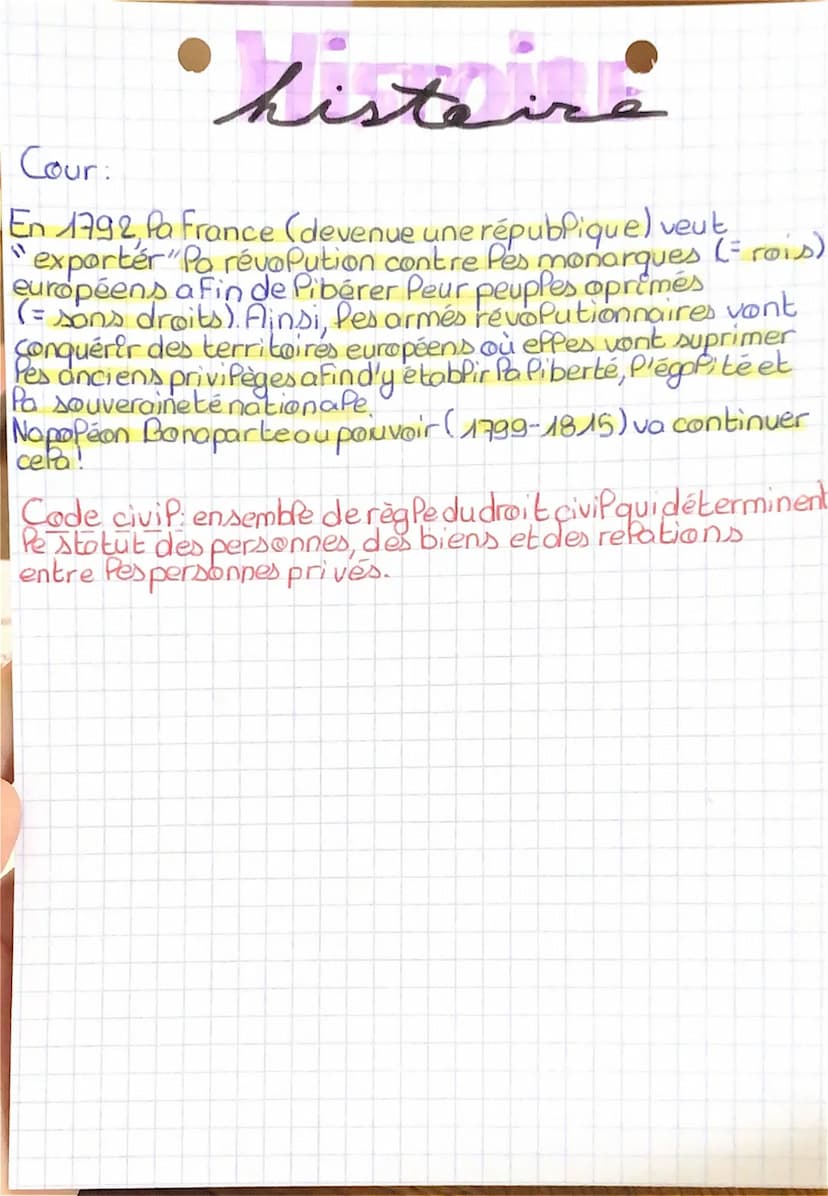 Histoire
histoire
Cour:
En 1792, la France (devenue une république) veut
"exportér" la révolution contre les monarques (= rois)
européens afin de libérer leur peuples oprimés
(= sans droits). Ainsi, les armés révolutionnaires vont
conquérir des territoires européens où elles vont suprimer
les anciens privilèges afin d'y établir la liberté, l'égalité et
la souveraineté nationale.
Napoléon Bonaparte au pouvoir (1799-1815) va continuer
cela !
Code civil: ensemble de règle du droit civil qui déterminent
le statut des personnes, des biens et des relations
entre les personnes privés.